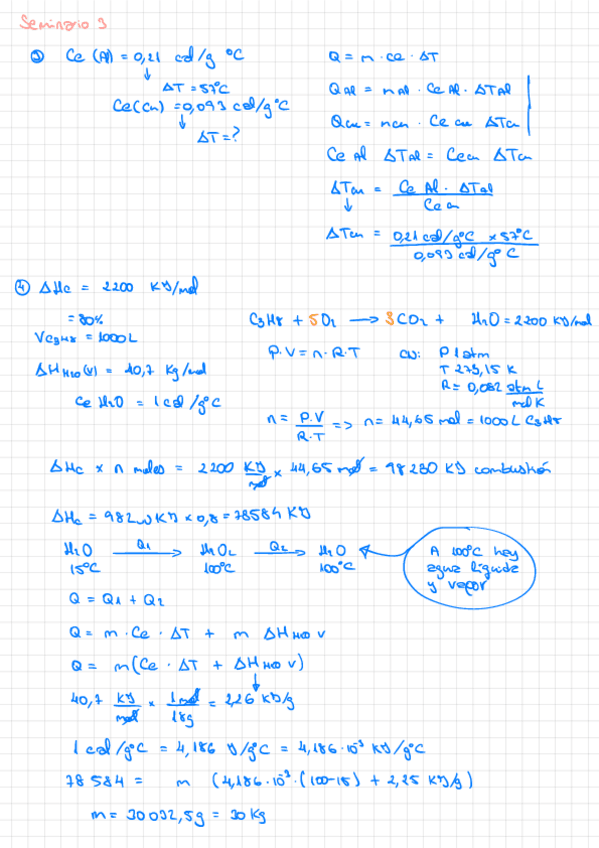 Seminario 3
③ Ce (Al) = 0,21 cal/g °C
↓
ΔT = 57°C
Ce(Cu) = 0,093 cal/g°C
↓
ΔT = ?
Q = m · ce · ΔT
QAl = mAl · Ce Al · ΔTAl
Qcu = mcu · Ce cu ΔTcu
Ce Al ΔTAl = Cecu ΔTcu
ΔTcu = Ce Al · ΔTAl / Ce cu
↓
ΔTcu = 0,21 cal/g°C × 57°C / 0,093 cal/g°C
④ ΔHc = 2200 KJ/mol
= 80%
VC3H8 = 1000L
ΔH H2O(v) = 40,7 Kg/mol
Ce H2O = 1 cal/g°C
C3H8 + 5O2 → 3CO2 + H2O = 2200 KJ/mol
P.V = n · R.T
CN: P 1 atm
T 273,15 K
R = 0,082 atm L / mol K
n = P.V / R.T => n = 44,65 mol = 1000L C3H8
ΔHc × n moles = 2200 KJ/mol × 44,65 mol = 98230 KJ combustión
ΔHc = 98230 KJ × 0,8 = 78584 KJ
H2O Q1→ H2O2 Q2→ H2O
15°C 100°C 100°C
A 100°C hay
agua líquida
y vapor
Q = Q1 + Q2
Q = m · Ce · ΔT + m ΔH H2O v
Q = m(Ce · ΔT + ΔH H2O v)
↓
40,7 KJ/mol × 1mol/18g = 2,26 KJ/g
1 cal/g°C = 4,186 J/g°C = 4,186·10⁻³ KJ/g°C
78584 = m (4,186·10⁻³·(100-15) + 2,25 KJ/g)
m = 30032,5g = 30 Kg